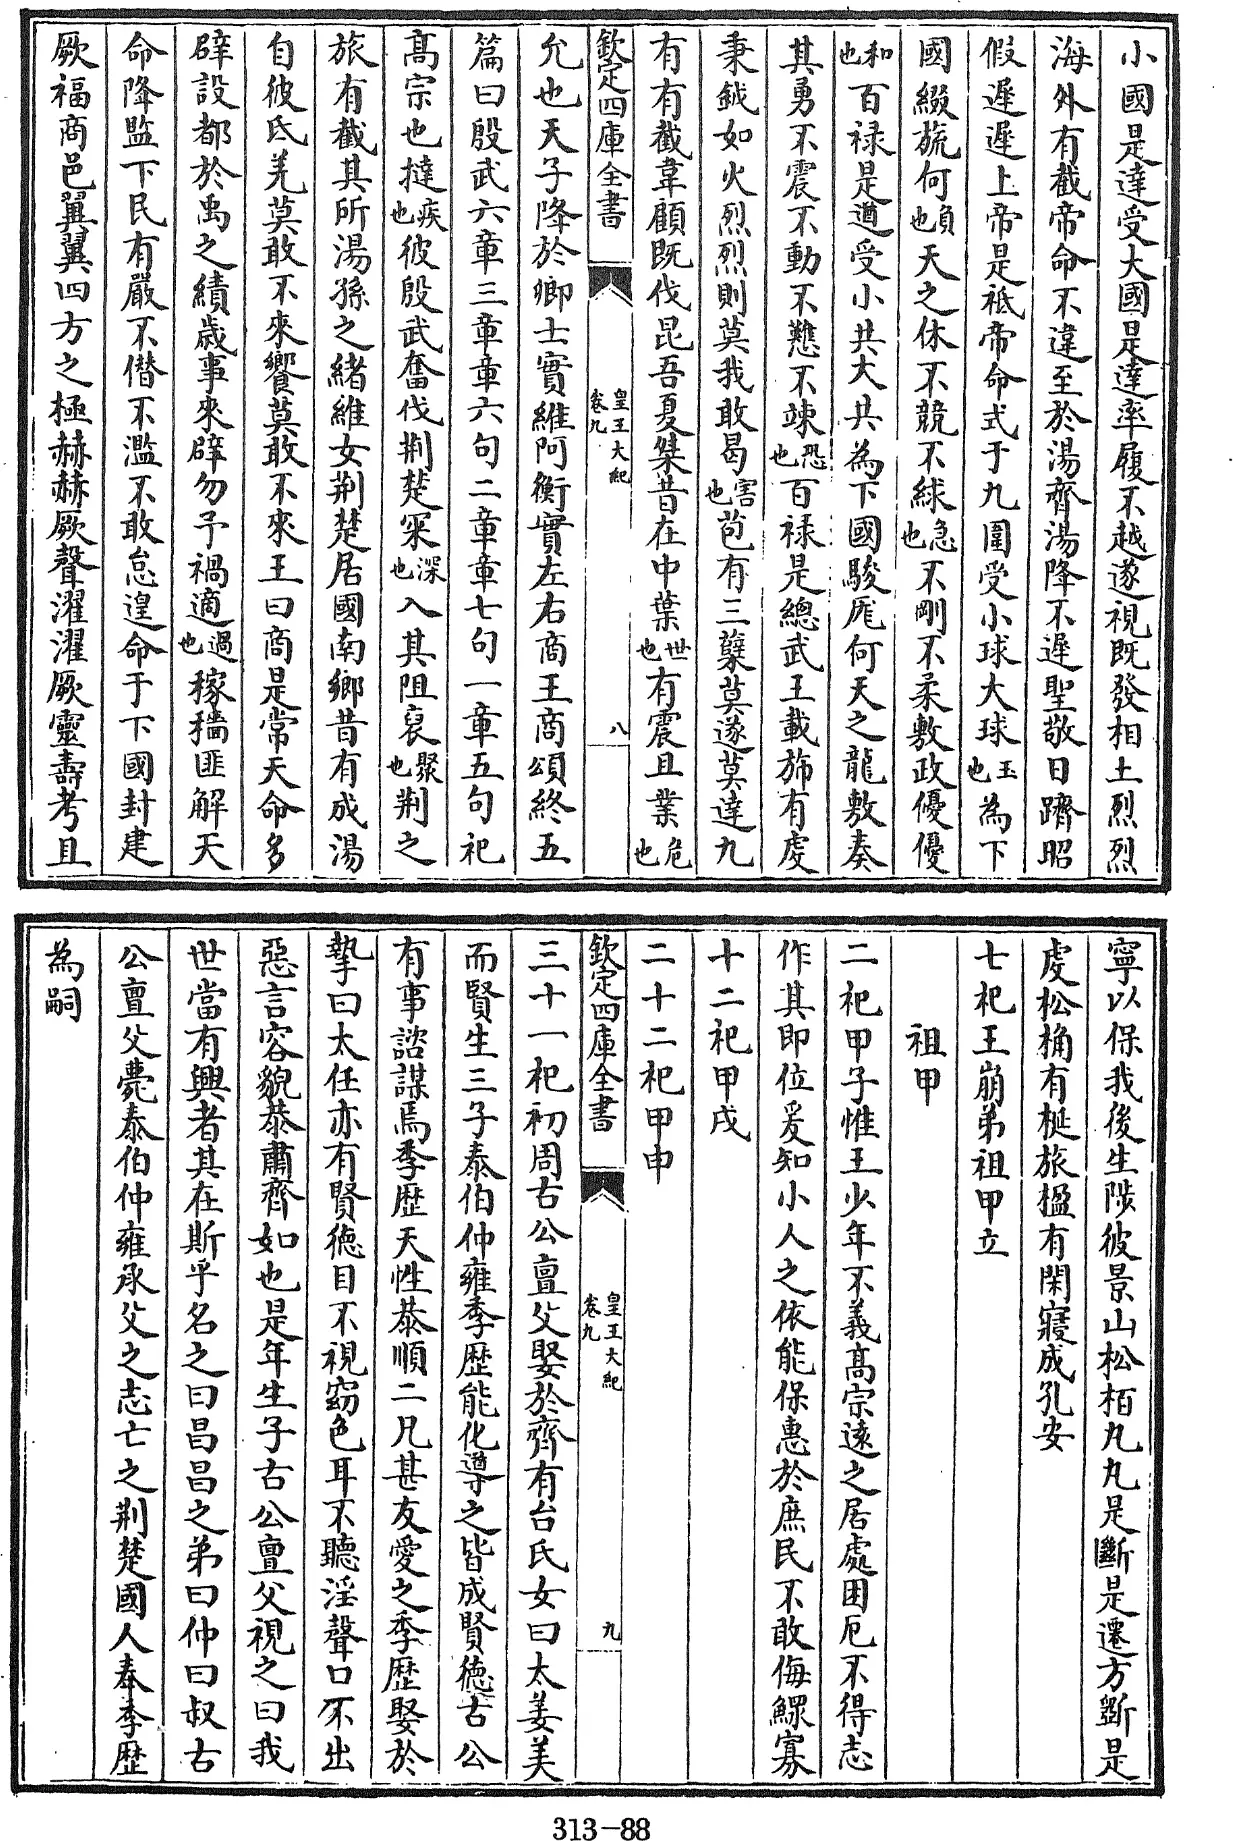 小國是達受大國是達率履不越遂視既發相土烈烈
海外有截帝命不違至於湯齊湯降不遲聖敬日躋昭
假遲遲上帝是祗帝命式于九圍受小球大球玉也為下
國綴旒何負也天之休不競不絿急也不剛不柔敷政優優
和也百禄是遒受小共大共為下國駿厖何天之龍敷奏
其勇不震不動不戁不竦恐也百禄是總武王載斾有虔
秉鉞如火烈烈則莫我敢曷害也苞有三蘖莫遂莫達九
有有截韋顧既伐昆吾夏桀昔在中葉世也有震且業危也
欽定四庫全書 皇王大紀 卷九 八
允也天子降於卿士實維阿衡實左右商王商頌終五
篇曰殷武六章三章章六句二章章七句一章五句祀
高宗也撻疾也彼殷武奮伐荆楚冞深也入其阻裒聚也荆之
旅有截其所湯孫之緒維女荆楚居國南鄉昔有成湯
自彼氐羌莫敢不來饗莫敢不來王曰商是常天命多
辟設都於禹之績歲事來辟勿予禍適過也稼穡匪解天
命降監下民有嚴不僭不濫不敢怠遑命于下國封建
厥福商邑翼翼四方之極赫赫厥聲濯濯厥靈壽考且
寧以保我後生陟彼景山松栢丸丸是斷是遷方斲是
虔松桷有梴旅楹有閑寢成孔安
七祀王崩弟祖甲立
祖甲
二祀甲子惟王少年不義高宗逺之居處困厄不得志
作其即位爰知小人之依能保惠於庶民不敢侮鰥寡
十二祀甲戌
二十二祀甲申
欽定四庫全書 皇王大紀 卷九 九
三十一祀初周古公亶父娶於齊有台氏女曰太姜美
而賢生三子泰伯仲雍季歴能化導之皆成賢德古公
有事諮謀焉季歴天性恭順二凡甚友愛之季歴娶於
摯曰太任亦有賢德目不視窈色耳不聽淫聲口不出
惡言容貌恭肅齊如也是年生子古公亶父視之曰我
世當有興者其在斯乎名之曰昌昌之弟曰仲曰叔古
公亶父薨泰伯仲雍承父之志亡之荆楚國人奉季歴
為嗣
313-88